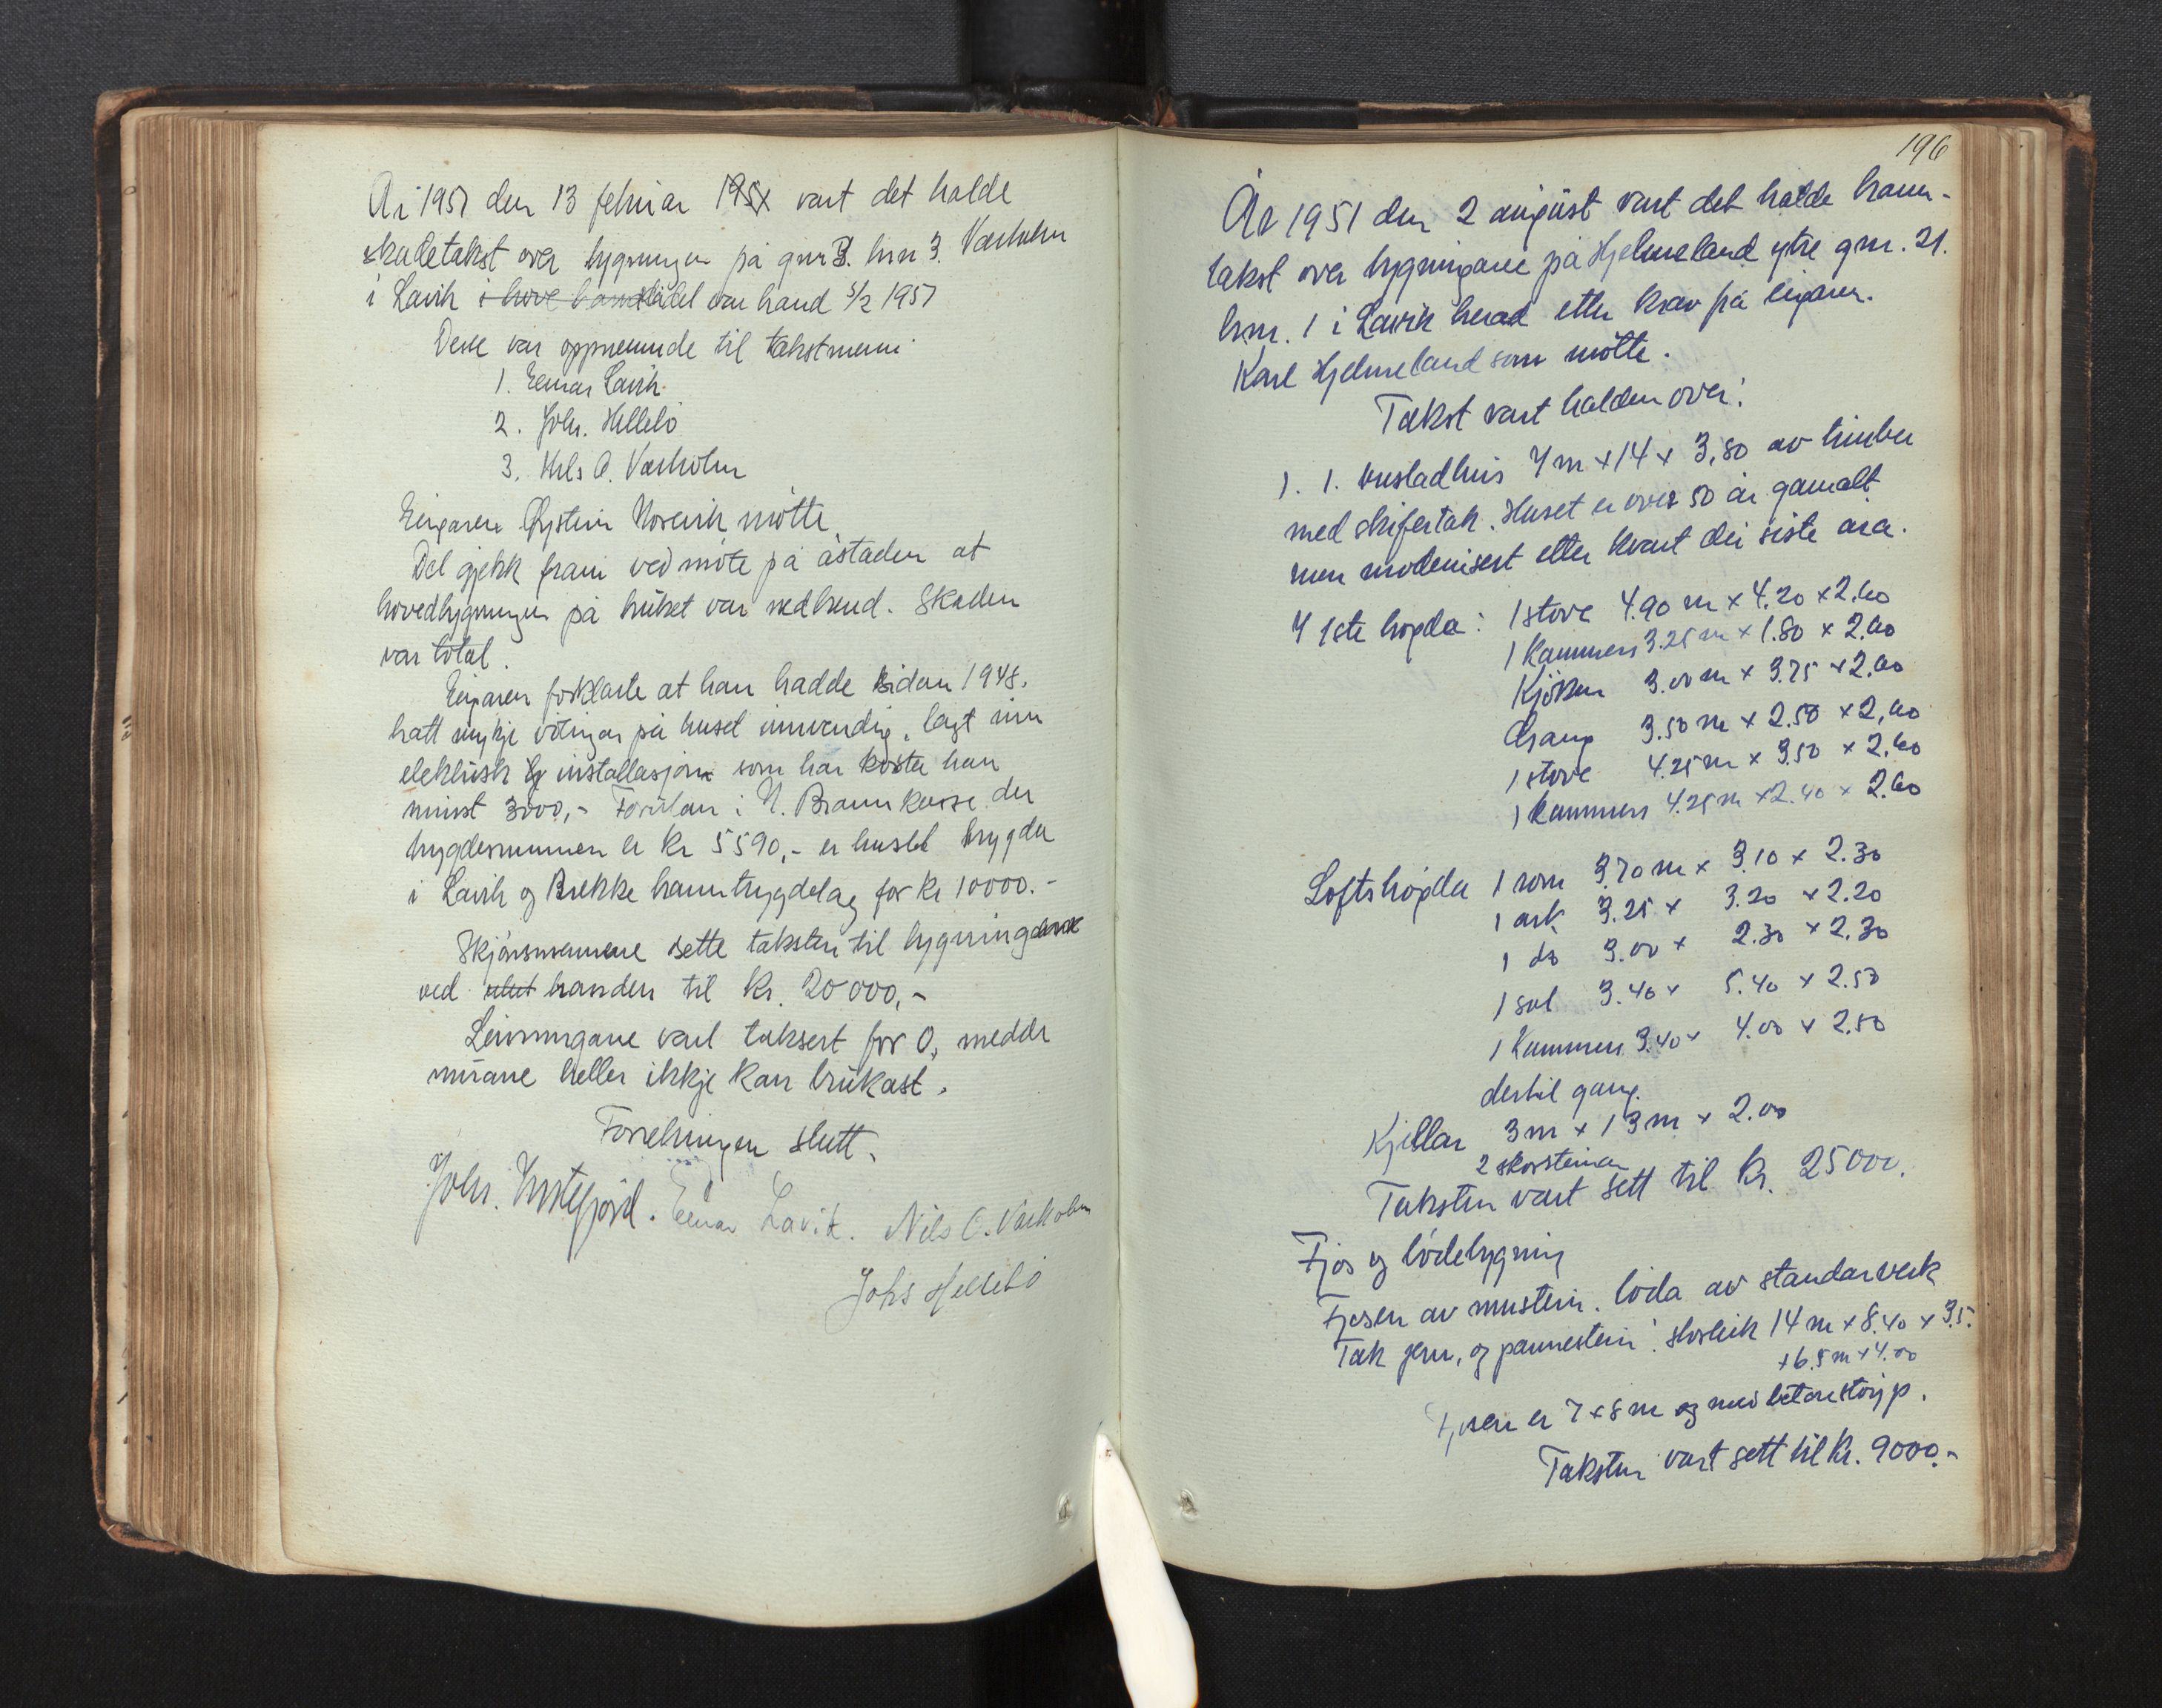 År 1951 den 13 februar 1951 vart det halde
skadetakst over bygningen på gnr 3. bnr 3. Værholm
i Lavik i hove bandkådel var brand 5/2 1951
Desse var oppnemnde til takstmenn.
1. Einar Lavik.
2. Johs. Hellebö
3. Nils O. Værholm
Eigaren Øystein Norevik mötte
Det gjekk fram ved möte på åstaden at
hovedbygningen på bruket var nedbrend. Skaden
var total.
Eigaren forklarte at han hadde sidan 1948.
hatt mykje völingar på huset innvendig, lagt inn
elektrisk lys installasjon som har kosta han
minst 3000,- Forutan i N. Brannkasse der
trygdesummen er kr 5590,- er huset trygda
i Lavik og Brekke branntrygdelag for kr 10000.-
Skjönsmennene sette taksten til bygningane
ved branden til kr. 20000,-
Leivningane vart taksert for 0, medda
murane heller ikkje kan brukast.
Forretningen slutt.
Johs. Ynstefjord. Einar Lavik. Nils O. Værholm
Johs Hellebö
196
År 1951 den 2 august vart det halde brann-
takst over bygningane på Hjelmeland ytre gnr. 21.
bnr. 1 i Lavik herad etter krav frå eigaren.
Karl Hjelmeland som mötte.
Takst vart halden over:
1. 1. våningshus 7 m x 14 x 3,80 av timber
med skifertak. Huset er over 50 år gamalt
men modernisert etter kvart dei siste åra.
I 1ste högda: 1 stove 4.90 m x 4.20 x 2.60
1 kammers 3.25 m x 1.80 x 2.60
Kjöken 3.00 m x 3.75 x 2.60
Gang 3.50 m x 2.50 x 2,60
1 stove 4.25 m x 3.50 x 2.60
1 kammers 4.25 m x 2.40 x 2.60
Loftshögda 1 rom 3.70 m x 3.10 x 2.30
1 ark 3.25 x 3.20 x 2.20
1 do 3.00 x 2.30 x 2.30
1 sal 3.40 x 5.40 x 2.50
1 kammers 3.40 x 4.00 x 2.50
dertil gang.
Kjellar 3 m x 13 m x 2.00
2 skorsteinar
Taksten vart sett til kr. 25000.
Fjos og lödebygning
Fjosen av murstein. löda av standarverk
Tak jern, og pannestein. storleik 14 m x 8.40 x 3.5.
+ 6.5 m x 4.00
Fjosen er 7 x 8 m og med betonstöyp.
Taksten vart sett til kr. 9000.-